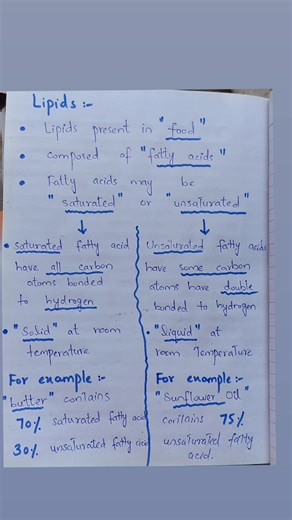 Lipids :-
• Lipids present in "food"
• composed of "fatty acids"
• Fatty acids may be
"saturated" or "unsaturated"
• saturated fatty acid
have all carbon
atoms bonded
to hydrogen
• "Solid" at room
temperature
For example :-
"butter" contains
70% saturated fatty acid
30% unsaturated fatty acid
Unsaturated fatty acids
have some carbon
atoms have double
bonded to hydrogen
• "Liquid" at
room Temperature
For example :-
"Sunflower oil"
contains 75%
unsaturated fatty
acid.